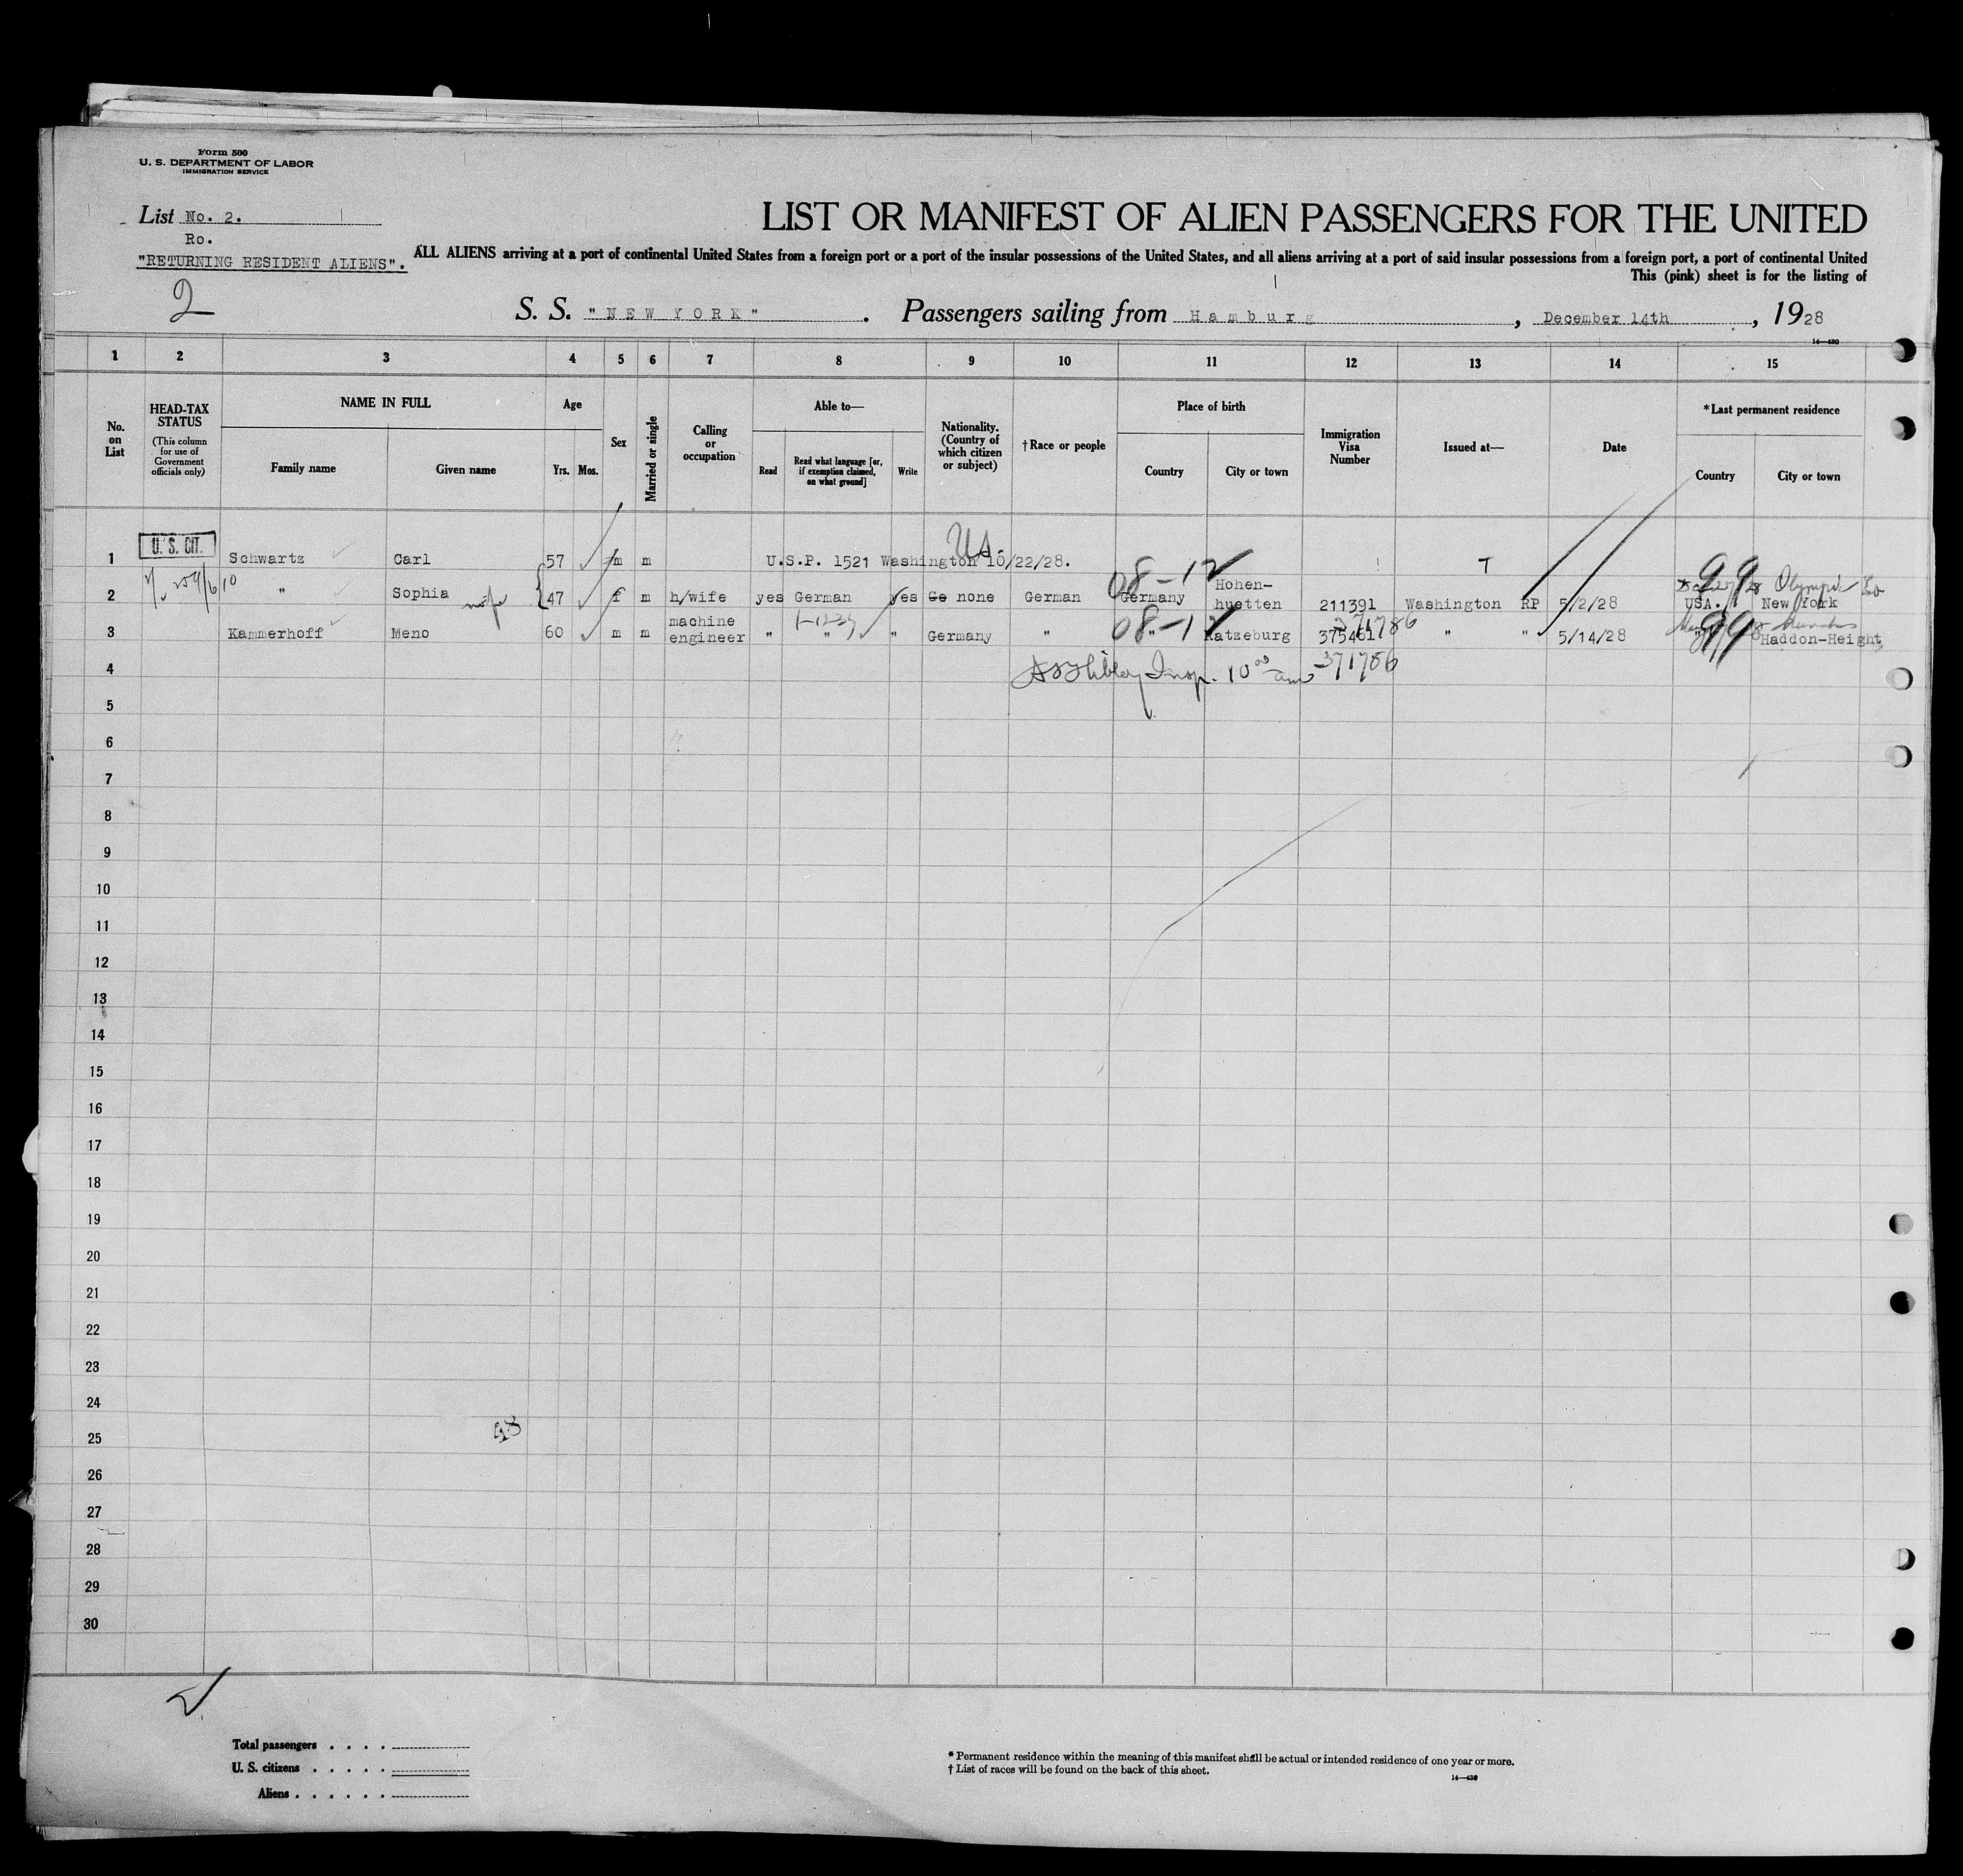 Form 500
U. S. DEPARTMENT OF LABOR
IMMIGRATION SERVICE
List No. 2.
Ro.
"RETURNING RESIDENT ALIENS".
2
LIST OR MANIFEST OF ALIEN PASSENGERS FOR THE UNITED
ALL ALIENS arriving at a port of continental United States from a foreign port or a port of the insular possessions of the United States, and all aliens arriving at a port of said insular possessions from a foreign port, a port of continental United
This (pink) sheet is for the listing of
S. S. "NEW YORK". Passengers sailing from Hamburg, December 14th, 1928
14—430
1 2 3 4 5 6 7 8 9 10 11 12 13 14 15
No. on List
HEAD-TAX STATUS
(This column for use of Government officials only)
NAME IN FULL
Family name
Given name
Age
Yrs. Mos.
Sex
Married or single
Calling or occupation
Able to—
Read
Read what language [or, if exemption claimed, on what ground]
Write
Nationality. (Country of which citizen or subject)
†Race or people
Place of birth
Country
City or town
Immigration Visa Number
Issued at—
Date
*Last permanent residence
Country
City or town
1 U. S. CIT. Schwartz Carl 57 m m U.S.P. 1521 Washington 10/22/28. US. T
2 " Sophia wife 47 f m h/wife yes German yes Ge none German Germany 08-1 Hohen-huetten 211391 Washington RP 5/2/28 99 Olympic USA. New York
3 Kammerhoff Meno 60 m m machine engineer " " " Germany " " 08-1 Ratzeburg 375461 371786 " " 5/14/28 " 99 Haddon-Height
4 Insp. 10 00 am 371786
5
6
7
8
9
10
11
12
13
14
15
16
17
18
19
20
21
22
23
24
25
26
27
28
29
30
Total passengers . . . .
U. S. citizens . . . . .
Aliens . . . . . .
* Permanent residence within the meaning of this manifest shall be actual or intended residence of one year or more.
† List of races will be found on the back of this sheet.
14—430